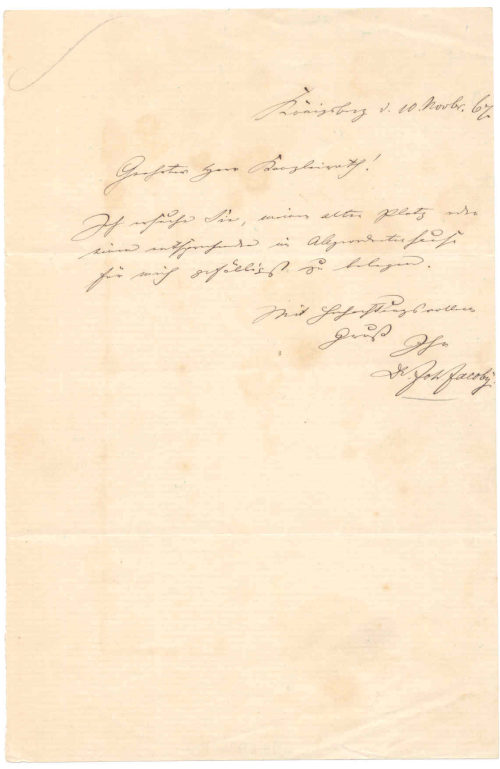 Königsberg d. 10 Novbr. 67.
Geehrter Herr Kanzleirath!
Ich ersuche Sie, meinen alten Platz oder
einen entsprechenden im Abgeordnetenhause
für mich gefälligst zu belegen.
Mit hochachtungsvollem
Gruß
Ihr
Dr. Joh Jacoby